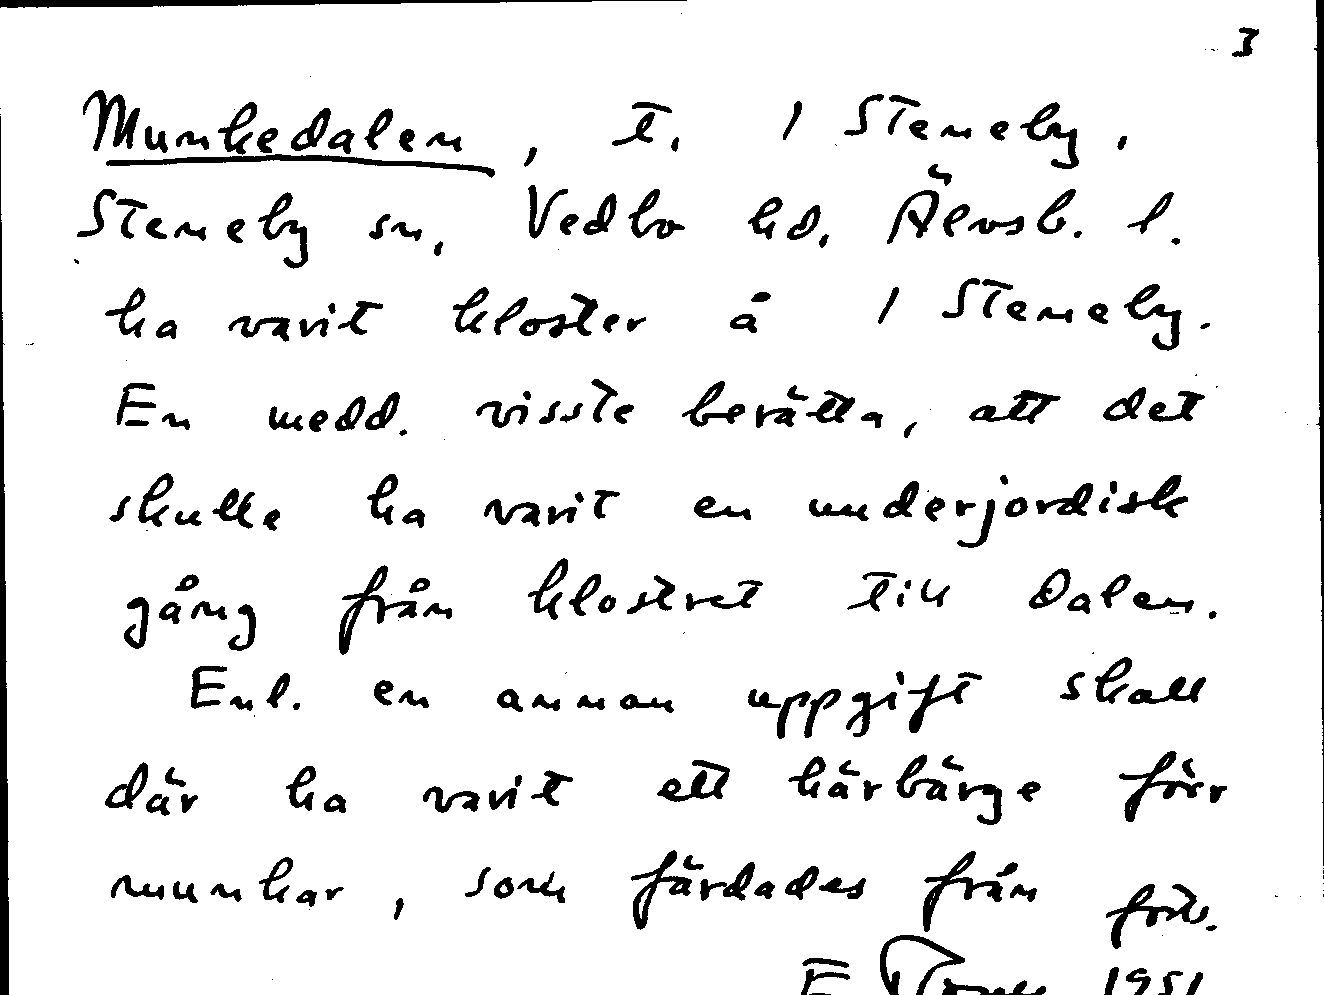 3
Munkedalen, t. 1 Steneby,
Steneby sn, Vedbo hd, Älvsb. l.
ha varit kloster å 1 Steneby.
En medd. visste berätta, att det
skulle ha varit en underjordisk
gång från klostret till Dalen.
Enl. en annan uppgift skall
där ha varit ett härbärge förr
munkar, som färdades från
E 1951